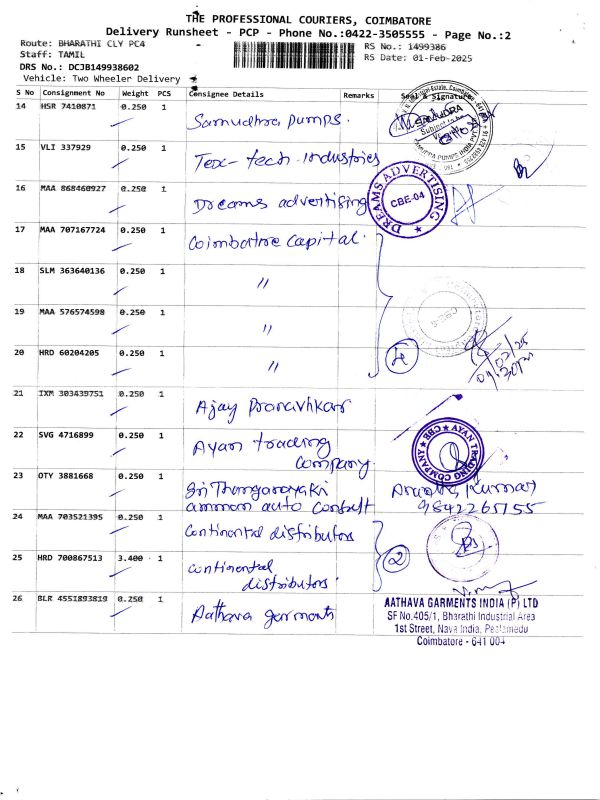 THE PROFESSIONAL COURIERS, COIMBATORE
Delivery Runsheet - PCP - Phone No.:0422-3505555 - Page No.:2
Route: BHARATHI CLY PC4
RS No.: 1499386
Staff: TAMIL
RS Date: 01-Feb-2025
DRS No.: DCJB149938602
Vehicle: Two Wheeler Delivery
S No Consignment No Weight PCS Consignee Details Remarks Seal & Signature
14 HSR 7410871 0.250 1 Samudhra pumps.
15 VLI 337929 0.250 1 Tex-tech industries
16 MAA 868460927 0.250 1 Dreams advertising
DREAMS ADVERTISING
CBE-04
17 MAA 707167724 0.250 1 Coimbatore capital.
18 SLM 363640136 0.250 1 "
19 MAA 576574598 0.250 1 "
20 HRD 60204205 0.250 1 " 4
21 IXM 303439751 0.250 1 Ajay
22 SVG 4716899 0.250 1 Ayan trading
company.
AYAN TRADING COMPANY CBE
23 OTY 3881668 0.250 1 Sri Thunganayaki
amman auto consult
Kumar
9842265155
24 MAA 703521395 0.250 1 Continental distributors
2
25 HRD 700867513 3.400 1 continental
distributors.
26 BLR 4551893819 0.250 1 Aathava garments
AATHAVA GARMENTS INDIA (P) LTD
SF No.405/1, Bharathi Industrial Area
1st Street, Nava India, Peelamedu
Coimbatore - 641 004